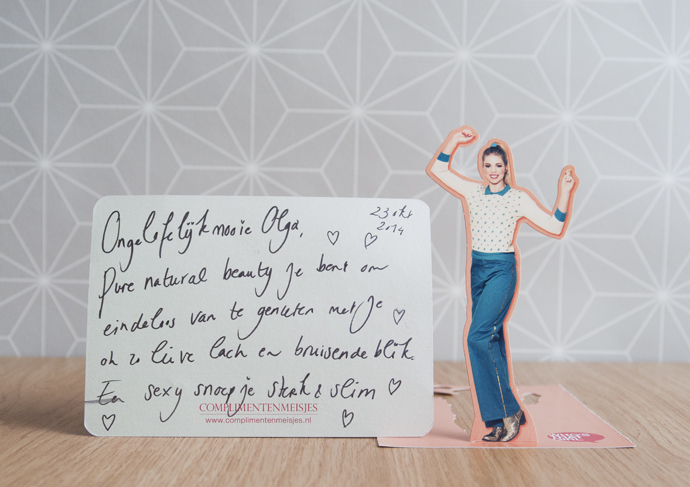 Ongelofelijk mooie Olga,
23 okt
2014
Pure natural beauty je bent om
eindeloos van te genieten met je
oh zo lieve lach en bruisende blik.
En sexy snoepje sterk & slim
COMPLIMENTENMEISJES
www.complimentenmeisjes.nl